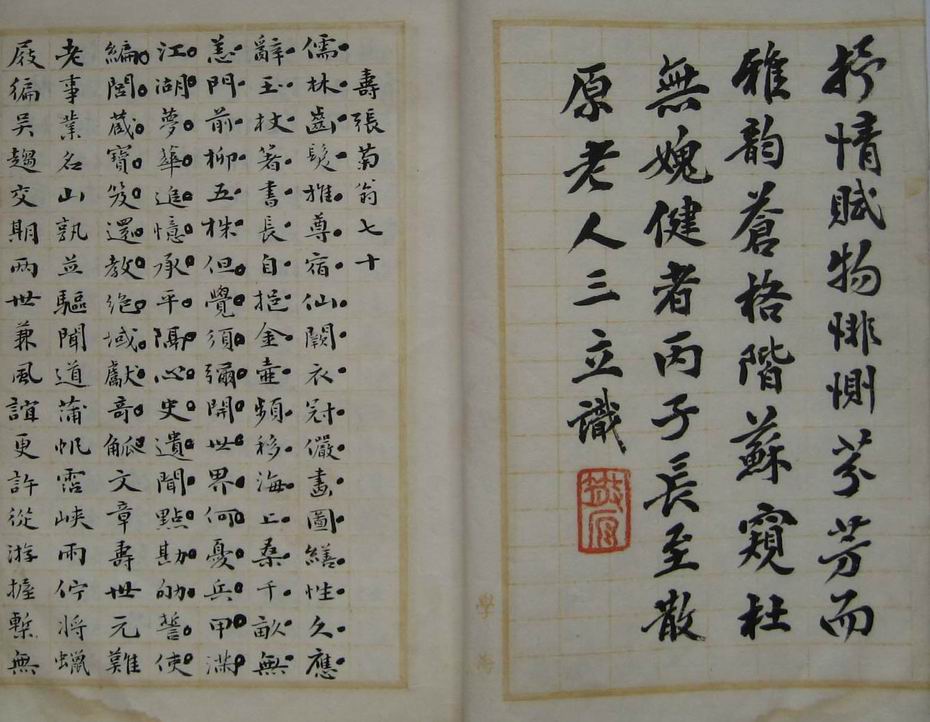 抒情賦物悱惻芬芳而
雅韵蒼格階蘇窺杜
無媿健者丙子長至散
原老人三立識
散原
學海
壽張菊翁七十
儒林齒髮推尊宿仙闕衣冠儼畫圖繕性久應
辭玉杖著書長自挹金壺頻移海上桑千畝無
恙門前柳五株但覺須彌開世界何憂兵甲滿
江湖夢華追憶承平隔心史遺聞點勘劬誓使
編閭藏寶笈還教絶域獻奇觚文章壽世元難
老事業名山孰並驅聞道蒲帆霑峽雨佇將蠟
屐徧吳趨交期兩世兼風誼更許從游握槧無